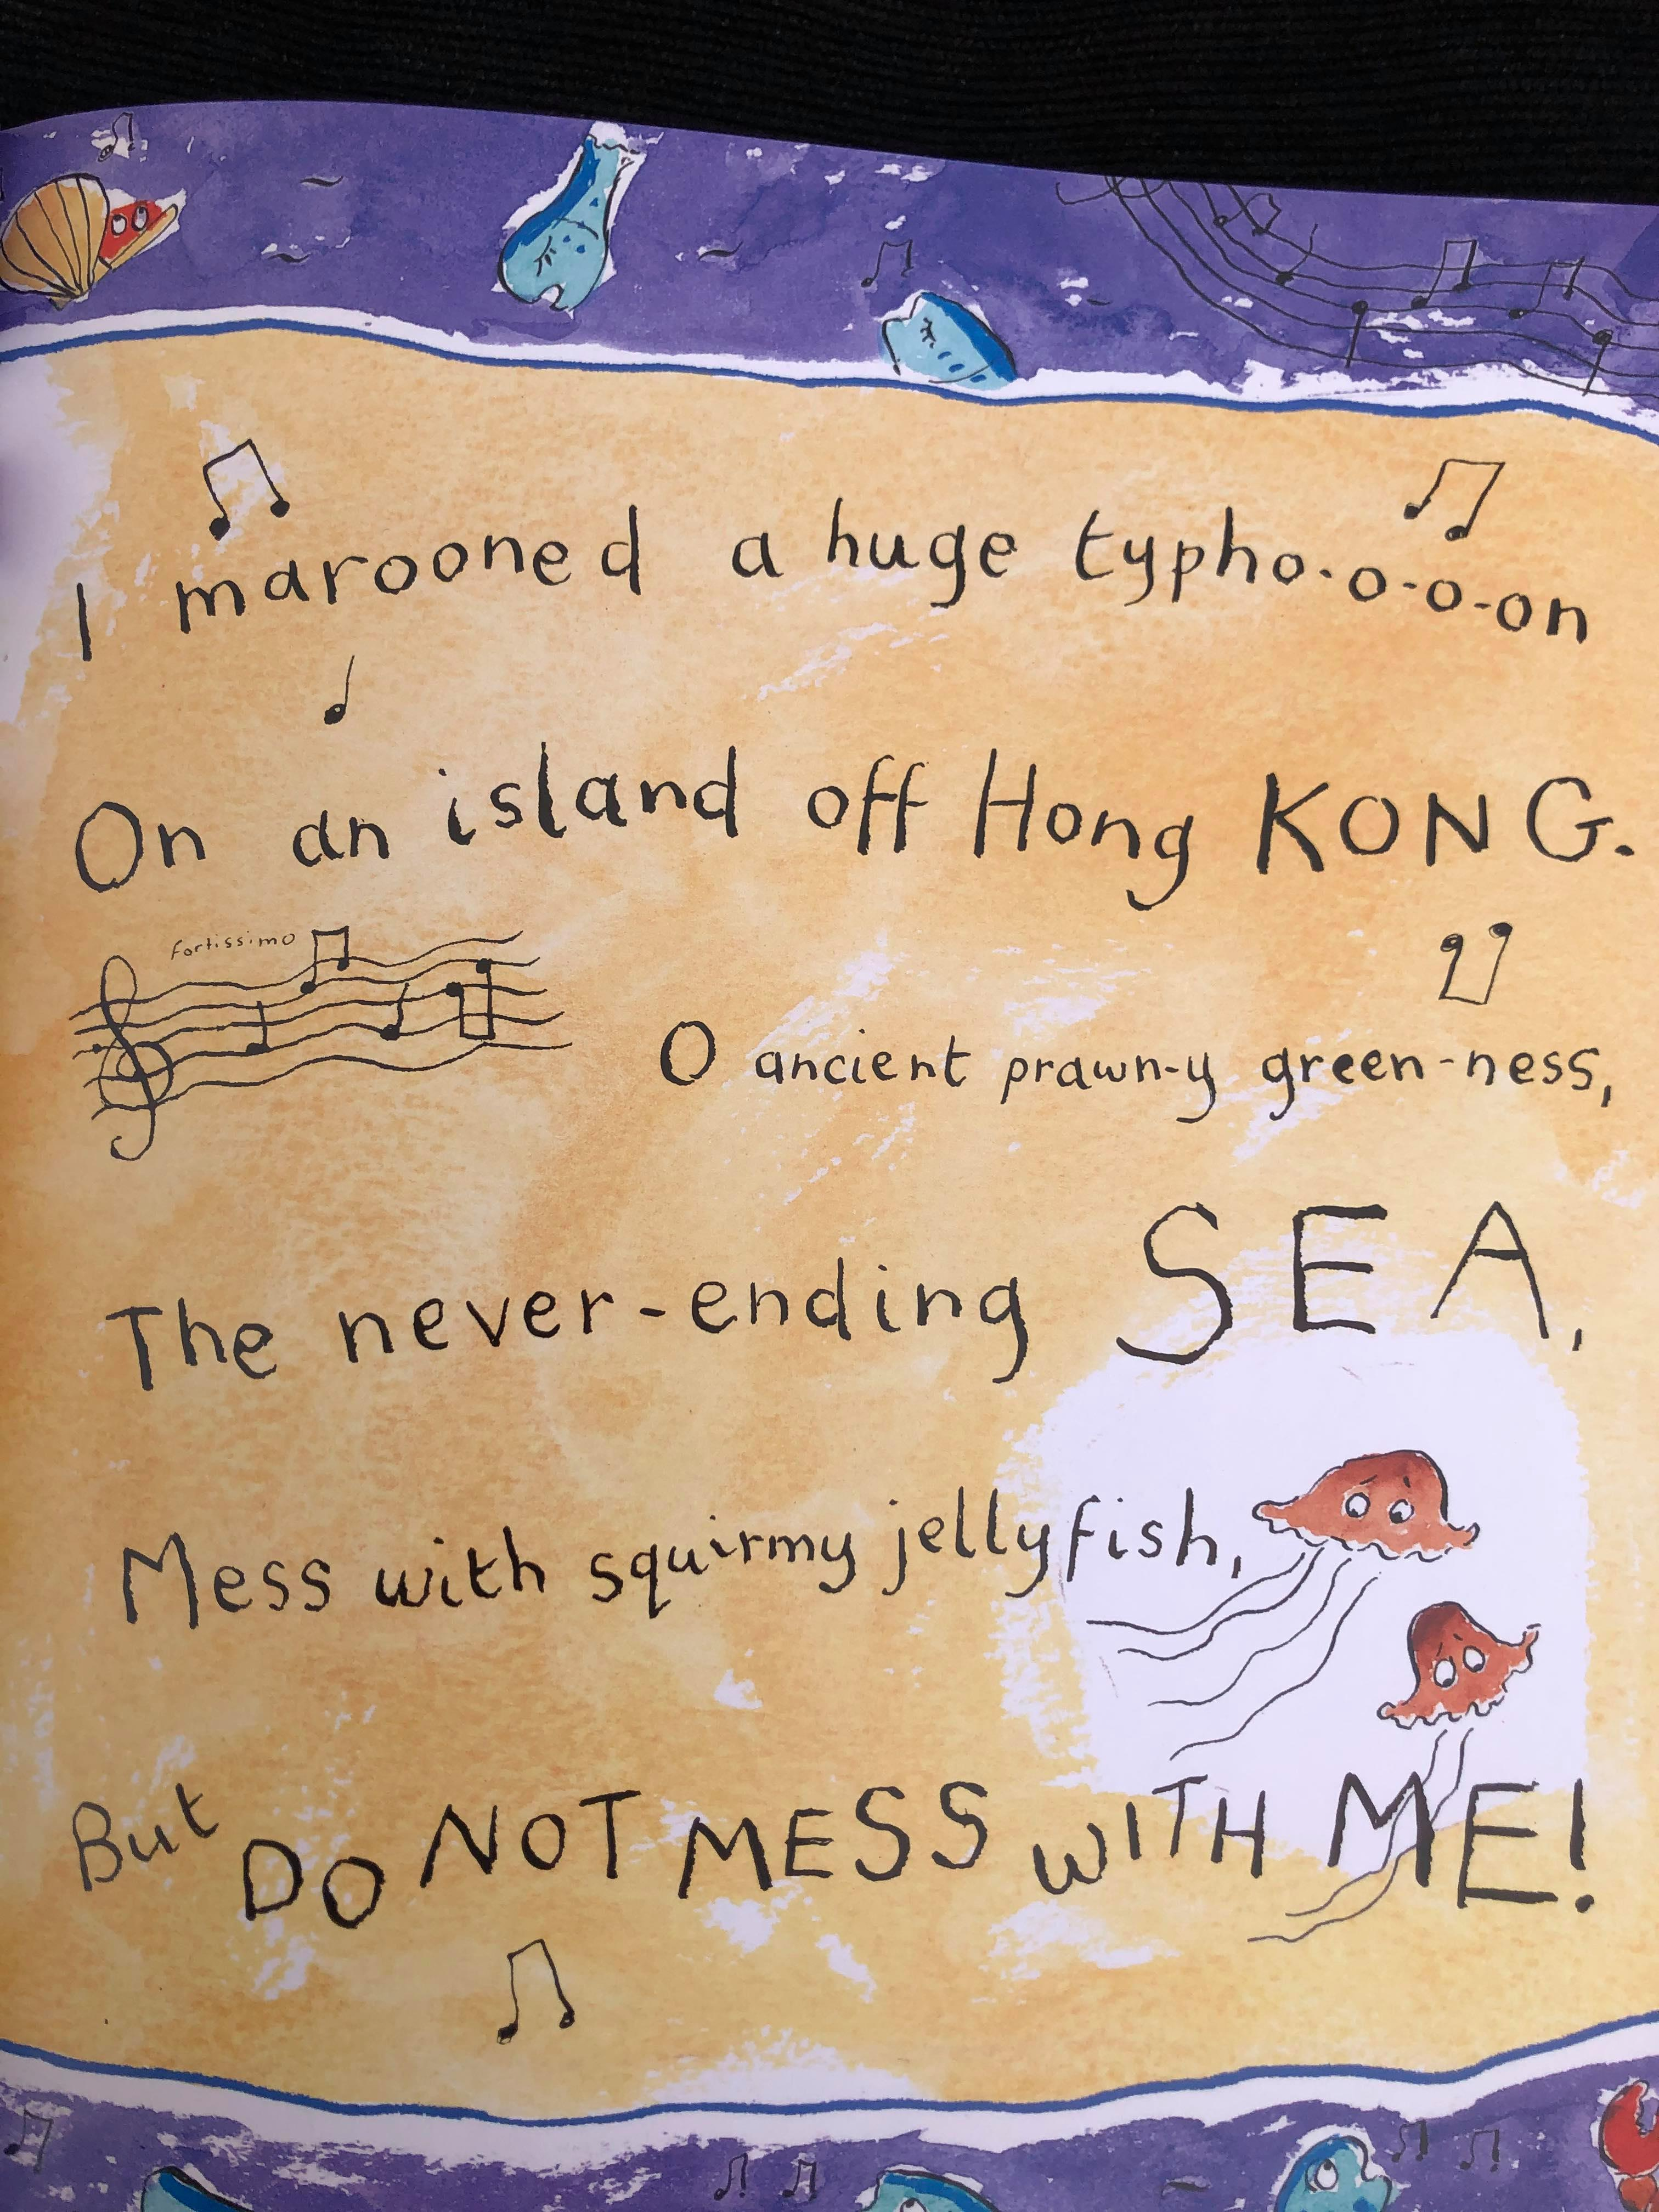 I marooned a huge typho-o-o-on
On an island off Hong KONG.
fortissimo
O ancient prawn-y green-ness,
The never-ending SEA,
Mess with squirmy jellyfish,
But DO NOT MESS WITH ME!